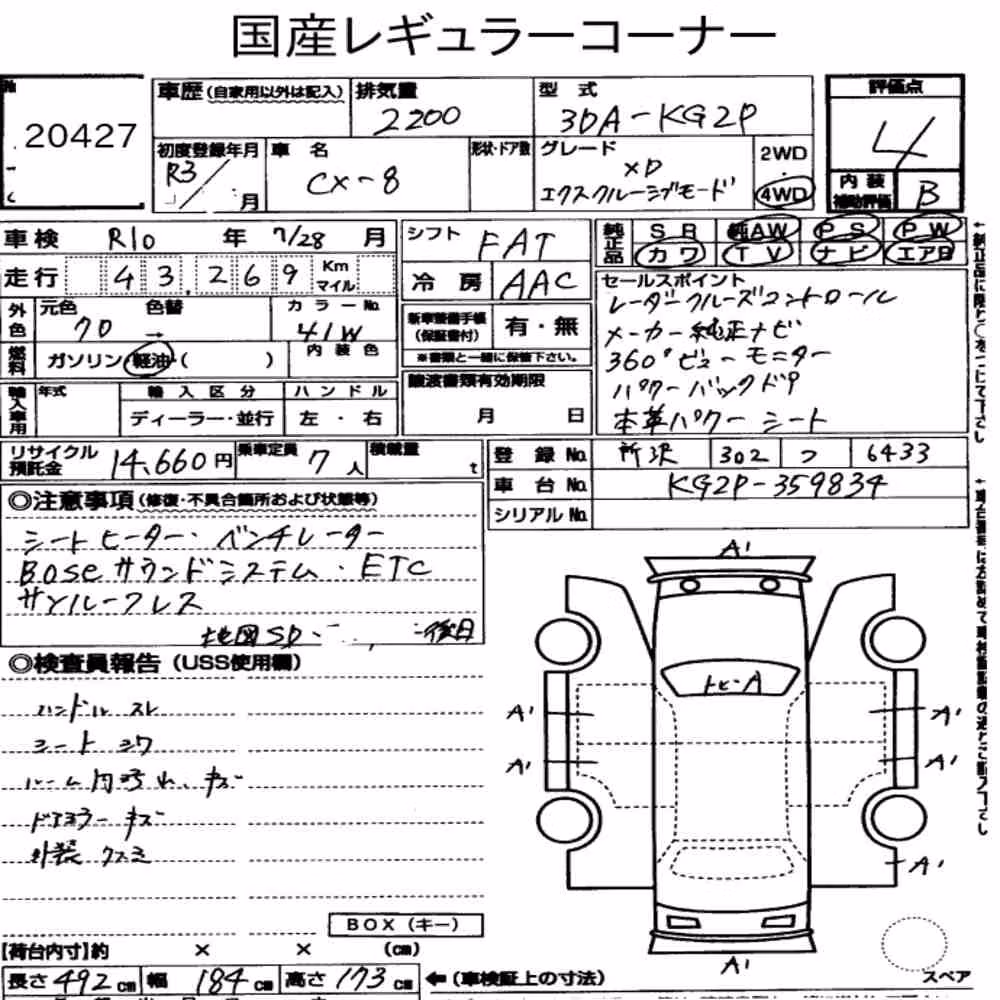 国産レギュラーコーナー
20427
車歴（自家用以外は記入）
排気量 2200
型式 3DA-KG2P
評価点 4
内装補助評価 B
初度登録年月 R3 月
車名 CX-8
形状・ドア数
グレード XD エクスクルーシブモード
2WD
・
4WD
車検 R10 年 7/28 月
シフト FAT
純正品 SR 純AW PS PW
カワ TV ナビ エアB
走行 43,269 Km マイル
冷房 AAC
外色 元色 70 → 色替
カラーNo. 41W
新車整備手帳（保証書付） 有・無
※書類と一緒に保管下さい。
燃料 ガソリン 軽油 （ ）
内装色
セールスポイント
レーダークルーズコントロール
メーカー純正ナビ
360°ビューモニター
パワーバックドア
本革パワーシート
輸入車用 年式 輸入区分 ハンドル
ディーラー・並行 左・右
譲渡書類有効期限
月 日
リサイクル預託金 14,660円
乗車定員 7人
積載量 t
登録No. 所沢 302 つ 6433
車台No. KG2P-359834
シリアルNo.
◎注意事項（修復・不具合箇所および状態等）
シートヒーター・ベンチレーター
BOSEサウンドシステム・ETC
サンルーフレス
地図SD・ 後日
◎検査員報告（USS使用欄）
ハンドル スレ
シート シワ
ルーム内汚れ、キズ
ドアミラー キズ
外装 クスミ
A1
トビ-A
A1 A1
A1 A1
A1
A1
スペア
BOX（キー）
【荷台内寸】約 × × （cm）
長さ 492 cm 幅 184 cm 高さ 173 cm ←（車検証上の寸法）